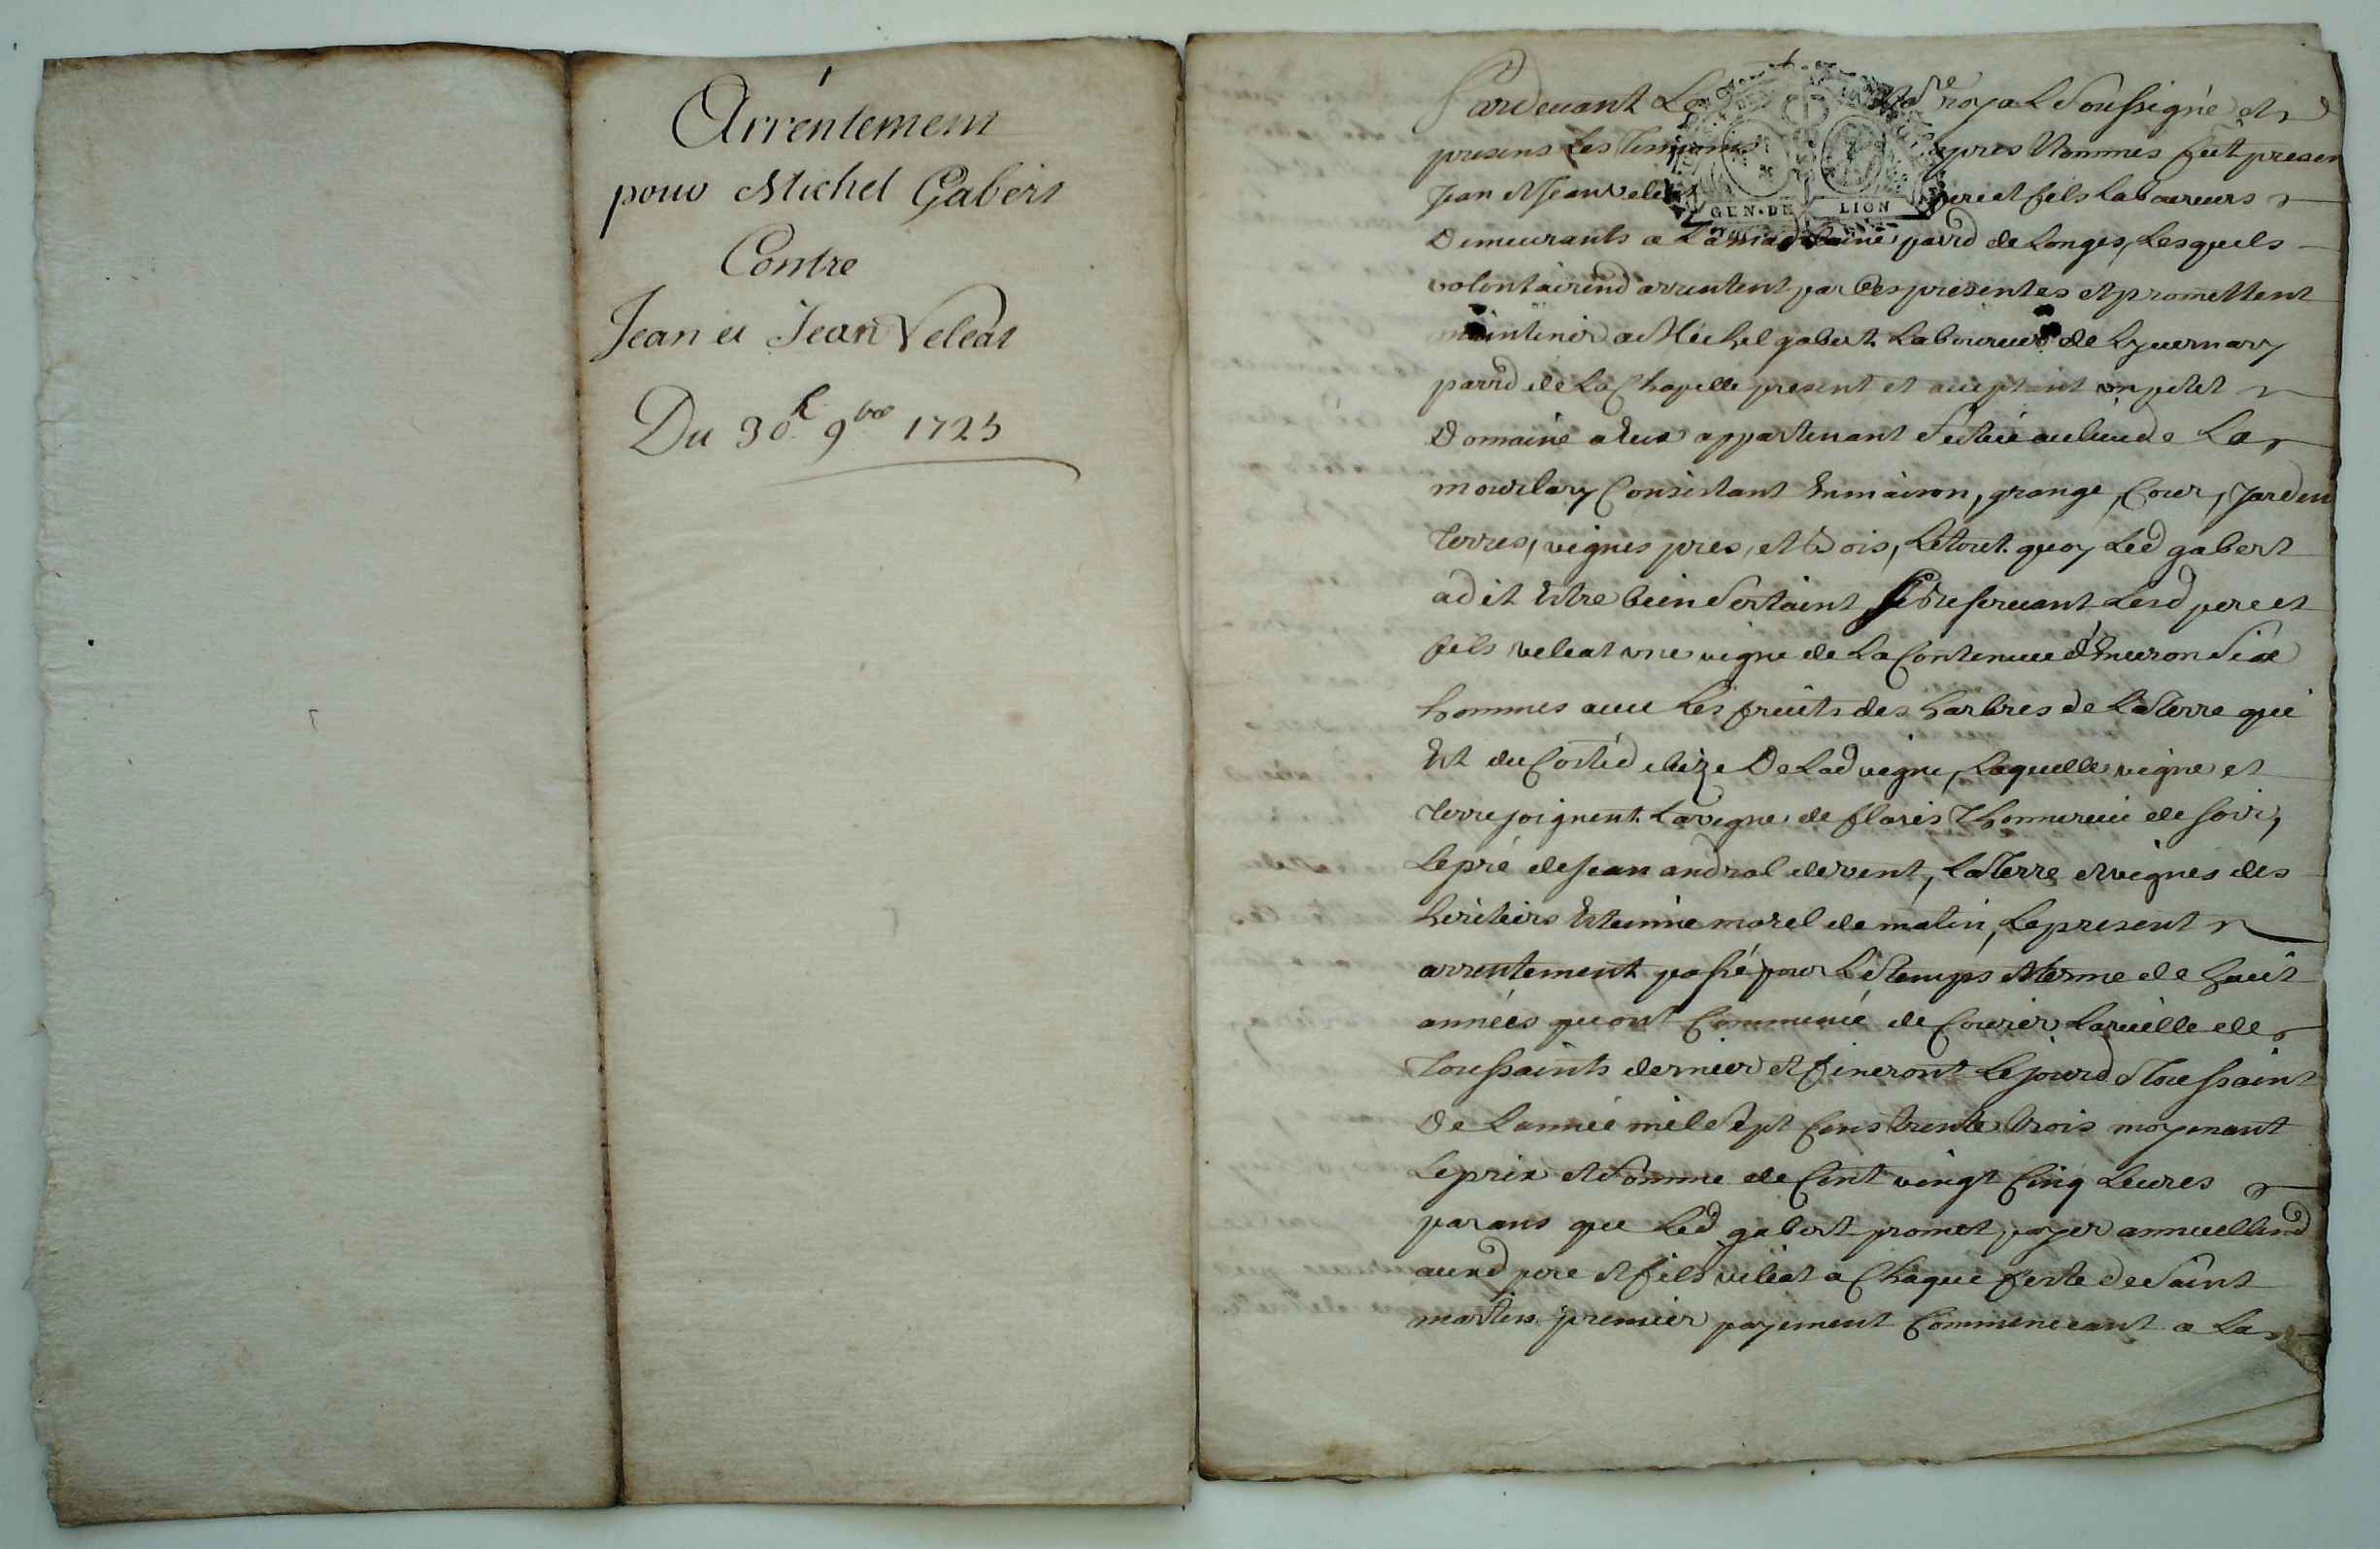 Arrentement
pour Michel Gabert
Contre
Jean et Jean Veleat
Du 30e 9bre 1725
Pardevant Le Nore royal Soussigné et
presens Les Temoins apres Nommés fut presen
Jean et Jean vele pere et fils Laboureurs
GEN. DE LION
Demeurants a La madelaine parrd de Longes, Lesquels
volontairemd arrentent par Ces presentes et promettent
maintenir a Michel gabert Laboureur de
parrd de La Chapelle present et aceptant un petit
Domaine a eux appartenant Scitué au lieu de La
Consistant En maison, grange, Cour, Jardin
terres, vignes pres, et Bois, Le tout quoy Led gabert
a dit Estre bien Sertaint, Se Reservant Lesd pere et
fils veleat une vigne de La Contenue d'Environ Six
hommes avec Les fruits des harbres de La Terre qui
Est du Costé d bize De Lad vigne, Laquelle vigne et
terre joignent La vigne de de soir,
Le pré de Jean andral de vent, La Terre et vignes des
heritiers Estienne morel de matin, Le present
arrentement passé pour Le Temps et terme de huit
années qu ont Commencé de Courir La veille de
Toussaints dernier et finiront Le jour d Toussaint
De Lannée mil Sept Cens trente trois moyenant
Le prix et Somme de Cent vingt Cinq Livres
par ans que Led gabert promet payer annuellemd
auxd pere et fils veleat a Chaque feste de Saint
martin premier payement Commencant a La